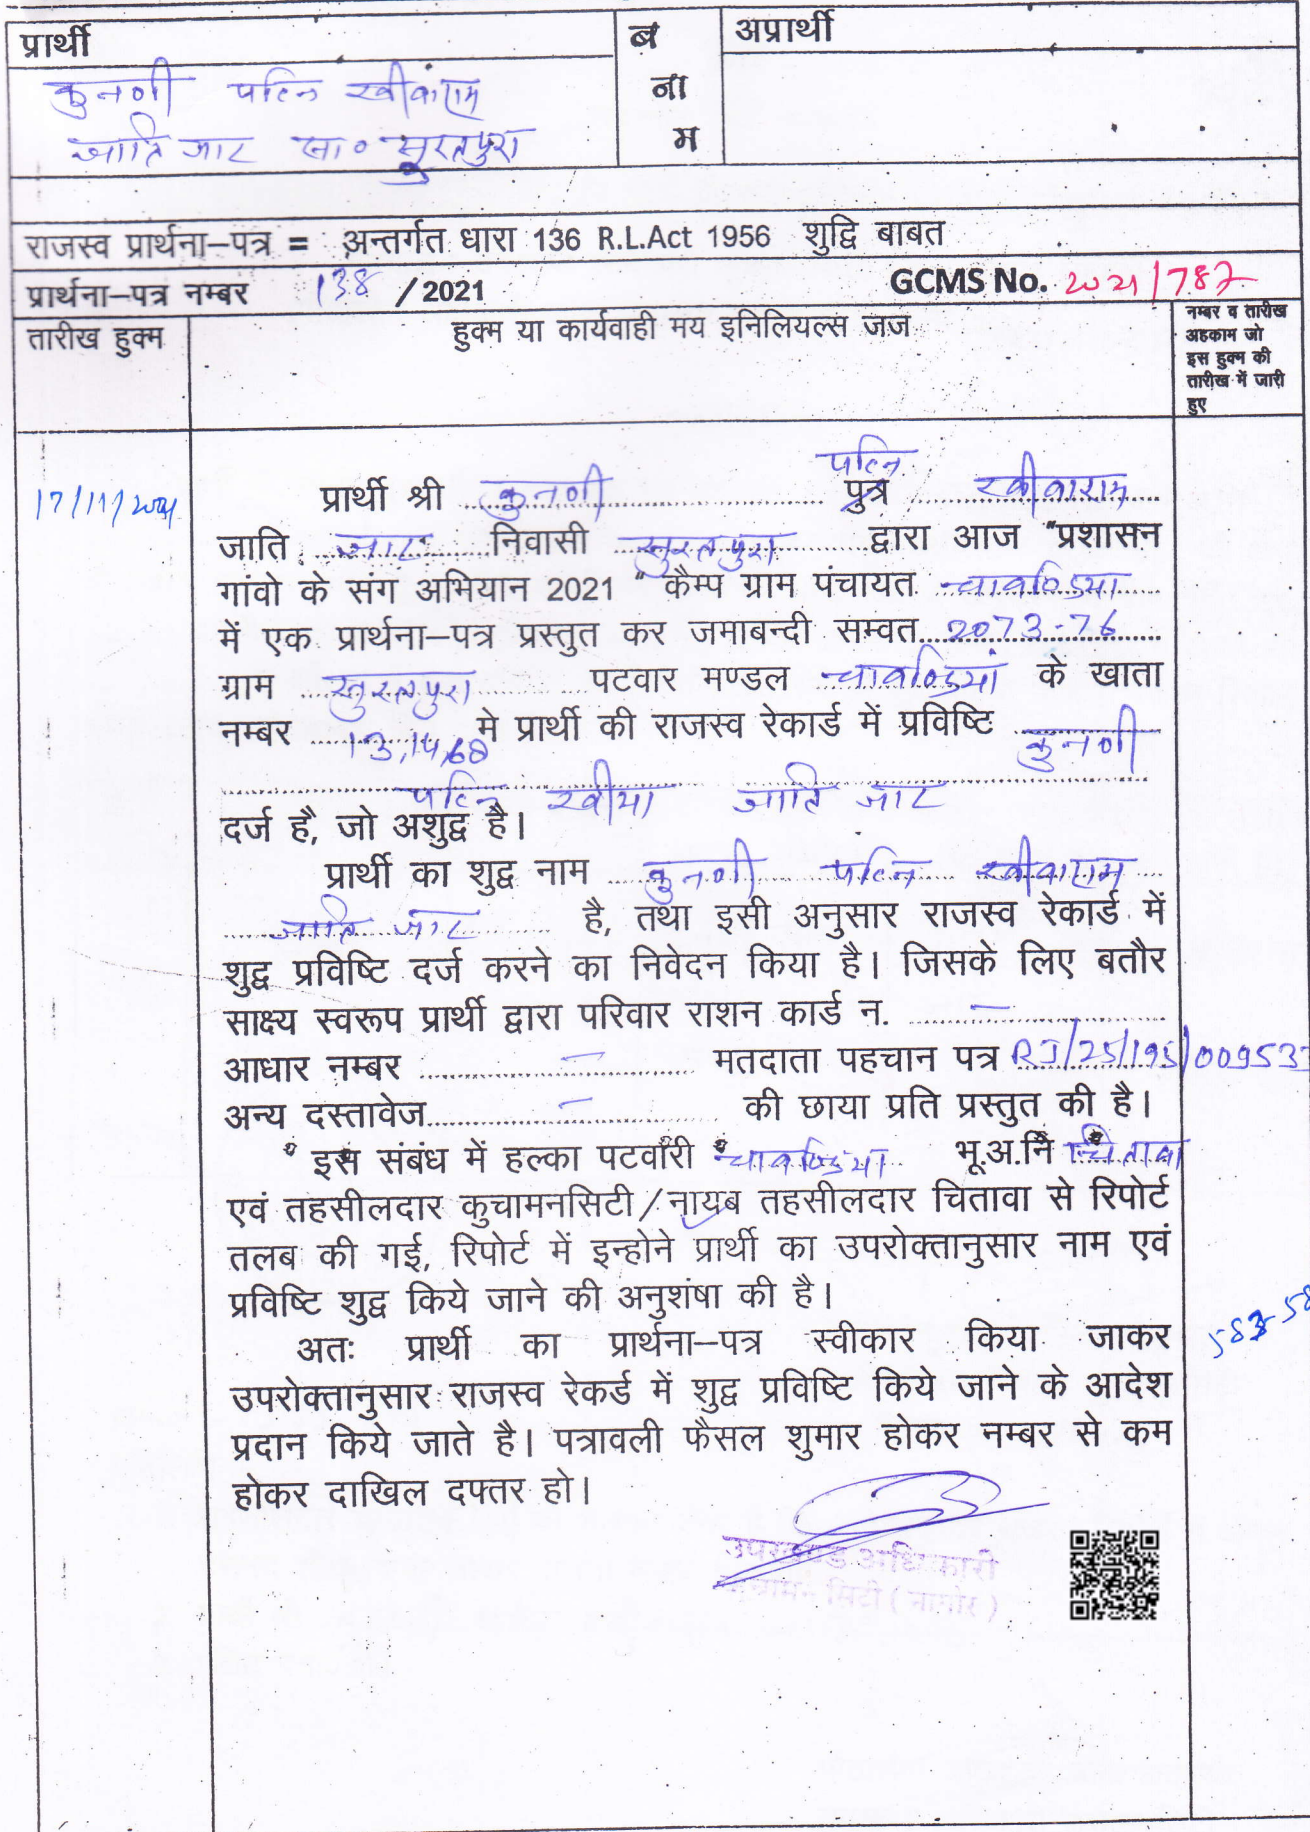 प्रार्थी
ब
ना
म
अप्रार्थी
कुनणी पत्नि खीवांराम
जाति जाट सा० सूरतपुरा
राजस्व प्रार्थना–पत्र = अन्तर्गत धारा 136 R.L.Act 1956 शुद्वि बाबत
प्रार्थना–पत्र नम्बर 138 / 2021 GCMS No. 2021/787
तारीख हुक्म
हुक्म या कार्यवाही मय इनिलियल्स जज
नम्बर व तारीख
अहकाम जो
इस हुक्म की
तारीख में जारी
हुए
17/11/2021
पत्नि
प्रार्थी श्री कुनणी पुत्र खीवाराम
जाति जाट निवासी सुरतपुरा द्वारा आज "प्रशासन
गांवो के संग अभियान 2021 " कैम्प ग्राम पंचायत चावण्डिया
में एक प्रार्थना–पत्र प्रस्तुत कर जमाबन्दी सम्वत 2073-76
ग्राम सुरतपुरा पटवार मण्डल चावण्डियां के खाता
नम्बर 13,14,68 मे प्रार्थी की राजस्व रेकार्ड में प्रविष्टि कुनणी
पत्नि खीया जाति जाट
दर्ज है, जो अशुद्व है।
प्रार्थी का शुद्व नाम कुनणी पत्नि खीवाराम
जाति जाट है, तथा इसी अनुसार राजस्व रेकार्ड में
शुद्व प्रविष्टि दर्ज करने का निवेदन किया है। जिसके लिए बतौर
साक्ष्य स्वरूप प्रार्थी द्वारा परिवार राशन कार्ड न. –
आधार नम्बर – मतदाता पहचान पत्र RJ/25/195/009533
अन्य दस्तावेज – की छाया प्रति प्रस्तुत की है।
इस संबंध में हल्का पटवारी चावण्डिया भू.अ.नि चितावा
एवं तहसीलदार कुचामनसिटी/नायब तहसीलदार चितावा से रिपोर्ट
तलब की गई, रिपोर्ट में इन्होने प्रार्थी का उपरोक्तानुसार नाम एवं
प्रविष्टि शुद्व किये जाने की अनुशंषा की है।
अतः प्रार्थी का प्रार्थना–पत्र स्वीकार किया जाकर
उपरोक्तानुसार राजस्व रेकर्ड में शुद्व प्रविष्टि किये जाने के आदेश
प्रदान किये जाते है। पत्रावली फैसल शुमार होकर नम्बर से कम
होकर दाखिल दफ्तर हो।
उपखण्ड अधिकारी
कुचामन सिटी ( नागौर )